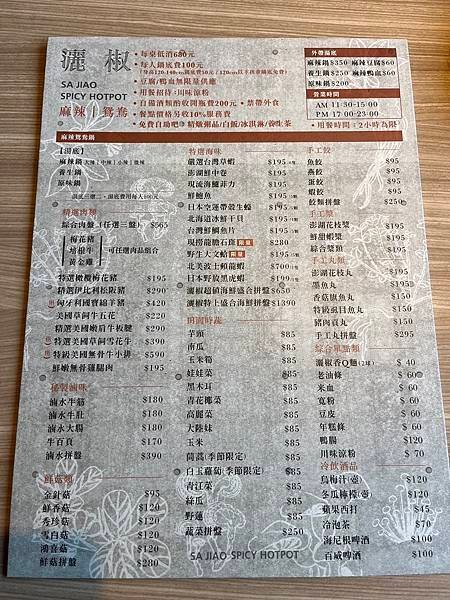 灑椒
SA JIAO
SPICY HOTPOT
麻辣｜鴛鴦
•每桌低消680元
•每人鍋底費100元
•豆腐/鴨血無限量供應
•用餐招待:川味涼粉
•自備酒類酌收開瓶費200元•禁帶外食
•餐點價格另收10%服務費
•免費自助吧｜精緻粥品/白飯/冰淇淋/養生茶
外帶湯底
麻辣鍋$350 麻辣豆腐$60
養生鍋$250 麻辣鴨血$60
原味鍋$200
營業時間
AM 11:30-15:00
PM 17:00-23:00
•用餐時間:2小時為限
麻辣鴛鴦鍋
【湯底】
麻辣鍋 大辣｜中辣｜小辣｜微辣
養生鍋
原味鍋
精選肉類
綜合肉盤(任選三盤) $565
梅花豬
培根牛
黃金雞
可任選肉品組合
特選嫩櫻梅花豬 $195
精選伊比利松阪豬 $290
匈牙利國寶綿羊豬 $420
美國草飼牛五花 $220
精選美國嫩肩牛板腱 $290
精選美國草飼雪花牛 $390
特級美國無骨牛小排 $590
鮮嫩無骨雞腿肉 $195
秘製滷味
滷水牛筋 $180
滷水牛肚 $180
滷水大腸 $180
牛百頁 $170
滷水拼盤 $390
鮮菇類
金針菇 $95
鮮香菇 $120
秀珍菇 $120
雪白菇 $120
鴻喜菇 $120
鮮菇拼盤 $280
特選海味
嚴選台灣草蝦 $195
澎湖鮮中卷 $195
現流海鱺菲力 $195
鮮鮑魚 $195
日本空運帶殼生蠔 $195
北海道冰鮮干貝 $195
台灣鮮鯛魚片 $195
現撈龍膽石斑 限量 $280
野生大文蛤 限量 $195
北美波士頓龍蝦 $700
日本野放黑虎蝦 $199
灑椒超值海鮮盛合拼盤 $650
灑椒特上盛合海鮮拼盤 $1390
田間時蔬
芋頭 $85
南瓜 $85
玉米筍 $85
娃娃菜 $85
黑木耳 $85
青花椰菜 $85
高麗菜 $85
大陸妹 $85
玉米 $85
茼蒿(季節限定) $85
白玉蘿蔔(季節限定) $85
青江菜 $85
絲瓜 $85
野蓮 $85
蔬菜拼盤 $250
手工餃
魚餃 $95
燕餃 $95
蛋餃 $95
蝦餃 $95
餃類拼盤 $250
手工漿
澎湖花枝漿 $195
鮮甜蝦漿 $195
綜合漿類 $195
手工丸類
澎湖花枝丸 $195
墨魚丸 $195
香菇旗魚丸 $195
特級虱目魚丸 $195
豬肉貢丸 $195
手工丸拼盤 $295
綜合單點類
灑椒香Q麵(2球) $ 40
老油條 $ 60
米血 $ 60
寬粉 $ 60
豆皮 $ 60
年糕條 $ 60
鴨腸 $120
川味涼粉 $ 70
冷飲酒品
烏梅汁(壺) $120
冬瓜檸檬(壺) $120
蘋果西打 $45
冷泡茶 $70
海尼根啤酒 $100
百威啤酒 $100
SA JIAO SPICY HOTPOT